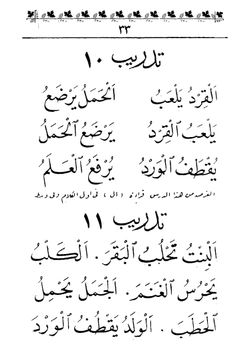 ٣٣
تدريب ١٠
اَلْقِرْدُ يَلْعَبُ اَلْحَمَلُ يَرْضَعُ
يَلْعَبُ الْقِرْدُ يَرْضَعُ الْحَمَلُ
يُقْطَفُ الْوَرْدُ يُرْفَعُ الْعَلَمُ
الغرض من هذا الدرس قراءة (ال) في أول الكلام وفي وسطه
تدريب ١١
اَلْبِنْتُ تَحْلُبُ الْبَقَرَ . اَلْكَلْبُ
يَحْرُسُ الْغَنَمَ . اَلْجَمَلُ يَحْمِلُ
الْحَطَبَ . اَلْوَلَدُ يَقْطُفُ الْوَرْدَ